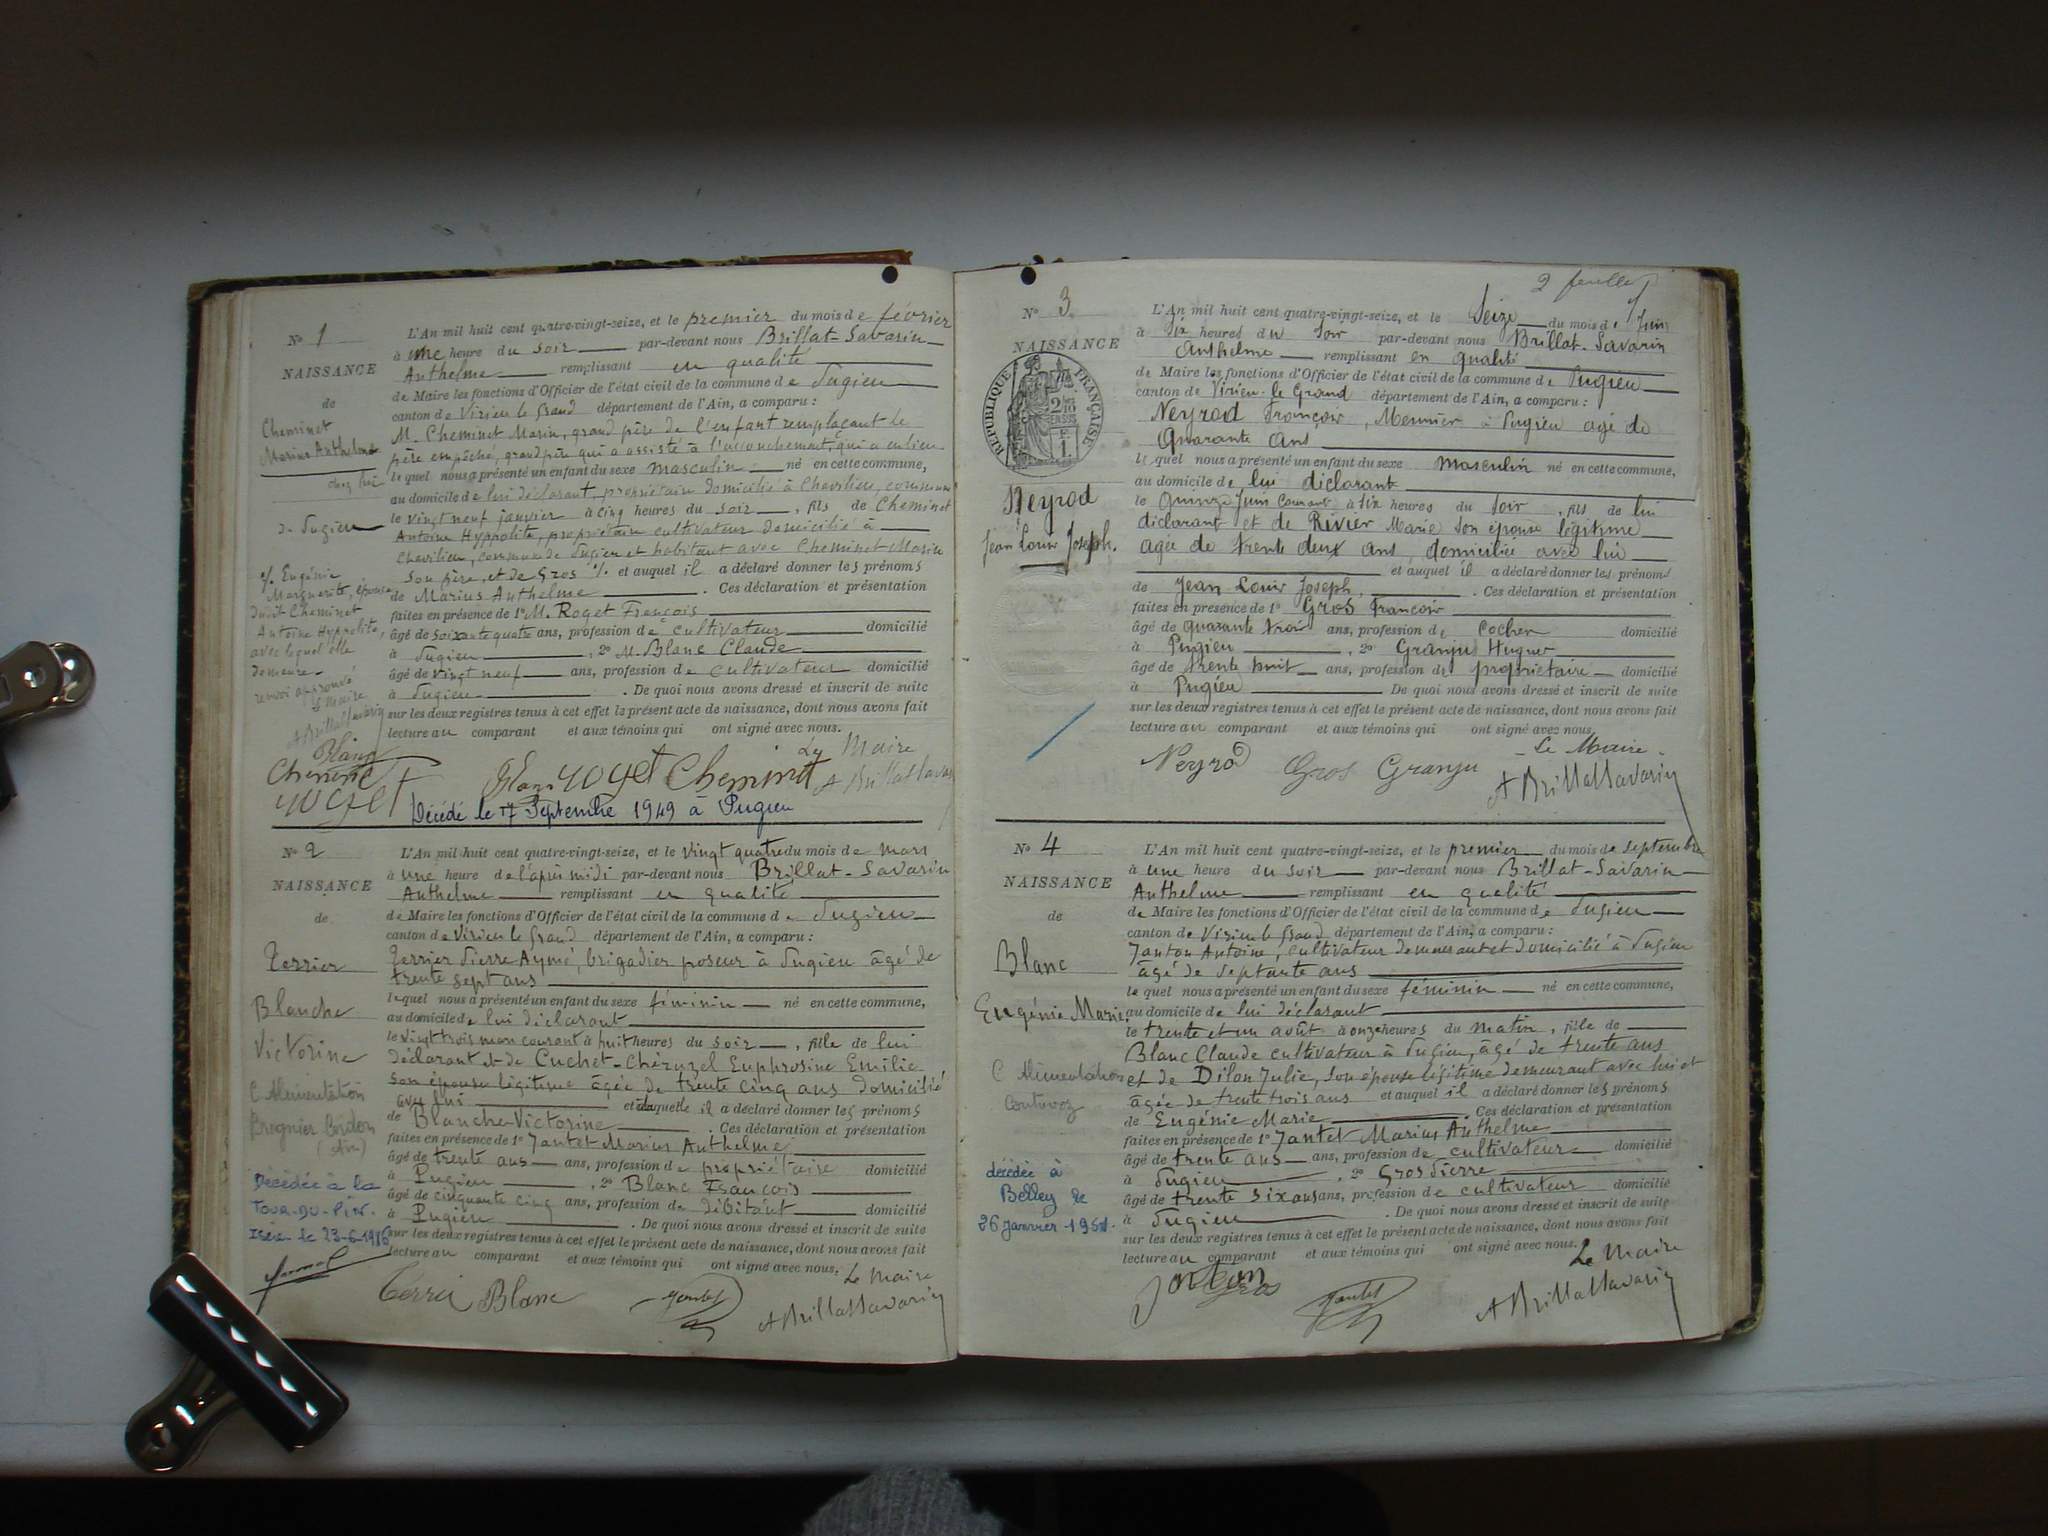 N° 1
NAISSANCE
de
Cheminet
Marius Anthelme
chez lui
à Pugieu
Eugénie
Marguerite, épouse
dudit Cheminet
Antoine Hyppolite,
avec lequel elle
demeure
renvoi approuvé
Le Maire
A Brillat Savarin
L'An mil huit cent quatre-vingt-seize, et le premier du mois de février
à une heure du soir par-devant nous Brillat-Savarin
Anthelme remplissant en qualité
de Maire les fonctions d'Officier de l'état civil de la commune de Pugieu
canton de Virieu le Grand département de l'Ain, a comparu :
M. Cheminet Marin, grand père de l'enfant remplaçant le
père empêché, grand père qui a assisté à l'accouchement, qui a eu lieu
lequel nous a présenté un enfant du sexe masculin né en cette commune,
au domicile de lui déclarant, propriétaire domicilié à Chavilieu, commune
le vingt neuf janvier à cinq heures du soir, fils de Cheminet
Antoine Hyppolite, propriétaire cultivateur domicilié à
Chavilieu, commune de Pugieu et habitant avec Cheminet Marin
son père, et de Gros % et auquel il a déclaré donner les prénoms
de Marius Anthelme. Ces déclaration et présentation
faites en présence de 1° M. Roget François
âgé de soixante quatre ans, profession de cultivateur domicilié
à Pugieu, 2° M. Blanc Claude
âgé de vingt neuf ans, profession de cultivateur domicilié
à Pugieu. De quoi nous avons dressé et inscrit de suite
sur les deux registres tenus à cet effet le présent acte de naissance, dont nous avons fait
lecture au comparant et aux témoins qui ont signé avec nous.
Le Maire
Blanc
Cheminet
roget
Blanc roget Cheminet A Brillat Savarin
Décédé le 17 Septembre 1949 à Pugieu
N° 2
NAISSANCE
de
Terrier
Blanche
Victorine
C Alimentation
Bregnier Cordon
(Ain)
Décédée à la
TOUR-DU-PIN
Isère le 23-6-1976
L'An mil huit cent quatre-vingt-seize, et le vingt quatre du mois de mars
à une heure de l'après midi par-devant nous Brillat-Savarin
Anthelme remplissant en qualité
de Maire les fonctions d'Officier de l'état civil de la commune de Pugieu
canton de Virieu le Grand département de l'Ain, a comparu :
Terrier Pierre Aymé, brigadier poseur à Pugieu âgé de
trente sept ans
lequel nous a présenté un enfant du sexe féminin né en cette commune,
au domicile de lui déclarant
le vingt trois mars courant à huit heures du soir, fille de lui
déclarant et de Cuchet-Chéruzel Euphrosine Emilie
son épouse légitime âgée de trente cinq ans domicilié
avec lui et à laquelle il a déclaré donner les prénoms
de Blanche-Victorine. Ces déclaration et présentation
faites en présence de 1° Jantet Marius Anthelme
âgé de trente ans ans, profession de propriétaire domicilié
à Pugieu, 2° Blanc François
âgé de cinquante cinq ans, profession de débitant domicilié
à Pugieu. De quoi nous avons dressé et inscrit de suite
sur les deux registres tenus à cet effet le présent acte de naissance, dont nous avons fait
lecture au comparant et aux témoins qui ont signé avec nous.
Le Maire
Terrier Blanc Jantet A Brillat Savarin
2 feuillet
N° 3
NAISSANCE
RÉPUBLIQUE FRANÇAISE
Neyrod
Jean Louis Joseph.
L'An mil huit cent quatre-vingt-seize, et le Seize du mois de Juin
à Six heures du Soir par-devant nous Brillat-Savarin
Anthelme remplissant en qualité
de Maire les fonctions d'Officier de l'état civil de la commune de Pugieu
canton de Virieu-le Grand département de l'Ain, a comparu :
Neyrod François, Meunier à Pugieu agé de
Quarante Ans
lequel nous a présenté un enfant du sexe Masculin né en cette commune,
au domicile de lui diclarant
le Quinze Juin Courant à Six heures du Soir, fils de lui
diclarant et de Rivier Marie Son épouse légitime
agée de trente deux ans, domiciliée avec lui
et auquel il a déclaré donner les prénoms
de Jean Louis Joseph. Ces déclaration et présentation
faites en présence de 1° Gros Francois
âgé de quarante trois ans, profession de Cocher domicilié
à Pugieu, 2° Granju Hugues
âgé de trente huit ans, profession de propriétaire domicilié
à Pugieu De quoi nous avons dressé et inscrit de suite
sur les deux registres tenus à cet effet le présent acte de naissance, dont nous avons fait
lecture au comparant et aux témoins qui ont signé avec nous.
Le Maire
Neyrod Gros Granju A Brillat Savarin
N° 4
NAISSANCE
de
Blanc
Eugénie Marie
C Alimentation
décédée à
Belley le
26 janvier
L'An mil huit cent quatre-vingt-seize, et le premier du mois de septembre
à une heure du soir par-devant nous Brillat-Savarin
Anthelme remplissant en qualité
de Maire les fonctions d'Officier de l'état civil de la commune de Pugieu
canton de Virieu le Grand département de l'Ain, a comparu :
Janton Antoine, cultivateur demeurant et domicilié à Pugieu
âgé de septante ans
lequel nous a présenté un enfant du sexe féminin né en cette commune,
au domicile de lui déclarant
le trente et un août à onze heures du matin, fille de
Blanc Claude cultivateur à Pugieu, âgé de trente ans
et de Dilon Julie, son épouse légitime demeurant avec lui et
âgée de trente trois ans et auquel il a déclaré donner les prénoms
de Eugénie Marie. Ces déclaration et présentation
faites en présence de 1° Jantet Marius Anthelme
âgé de trente ans ans, profession de cultivateur domicilié
à Pugieu, 2° Gros Pierre
âgé de trente six ans ans, profession de cultivateur domicilié
à Pugieu. De quoi nous avons dressé et inscrit de suite
sur les deux registres tenus à cet effet le présent acte de naissance, dont nous avons fait
lecture au comparant et aux témoins qui ont signé avec nous.
Le Maire
Janton Gros Jantet A Brillat Savarin